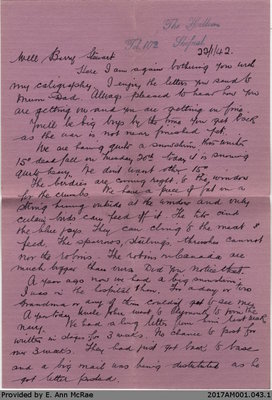 The Hallams
Tel 102 Shifnal
22/1/42.
Well Barry Stewart
Here I am again bothering you with
my caligraphy. I enjoy the letters you send to
Mum & Dad. Always pleased to hear how you
are getting on and you are getting on fine.
You'll be big boys by the time you get back
as the war is not near finished yet.
We are having quite a snowstorm this winter
15" dead fall on Monday 20th today it is snowing
quite heavy. We don't want other 15"
The birdies are coming right to the window
for the crumbs. We have a piece of fat on a
string hanging outside at the window and only
certain birds can feed off it. The tits and
the blue jays. They can cling to the meat &
feed. The sparrows, starlings, thrushes cannot
nor the robins. The robins in Canada are
much bigger than ours. Did you notice that.
A year ago now we had a big snowstorm,
I was in the hospital then. For a day or two
Grandma or any of them couldn't get to see me.
A year today Uncle John went to Plymouth to join the
navy. We had a long letter from him last week
written in stages for 3 weeks. No chance to post for
over 3 weeks. They had just got back to base
and a big mail was being distributed as he
got letter posted.
Provided by E. Ann McRae
2017AM001.043.1